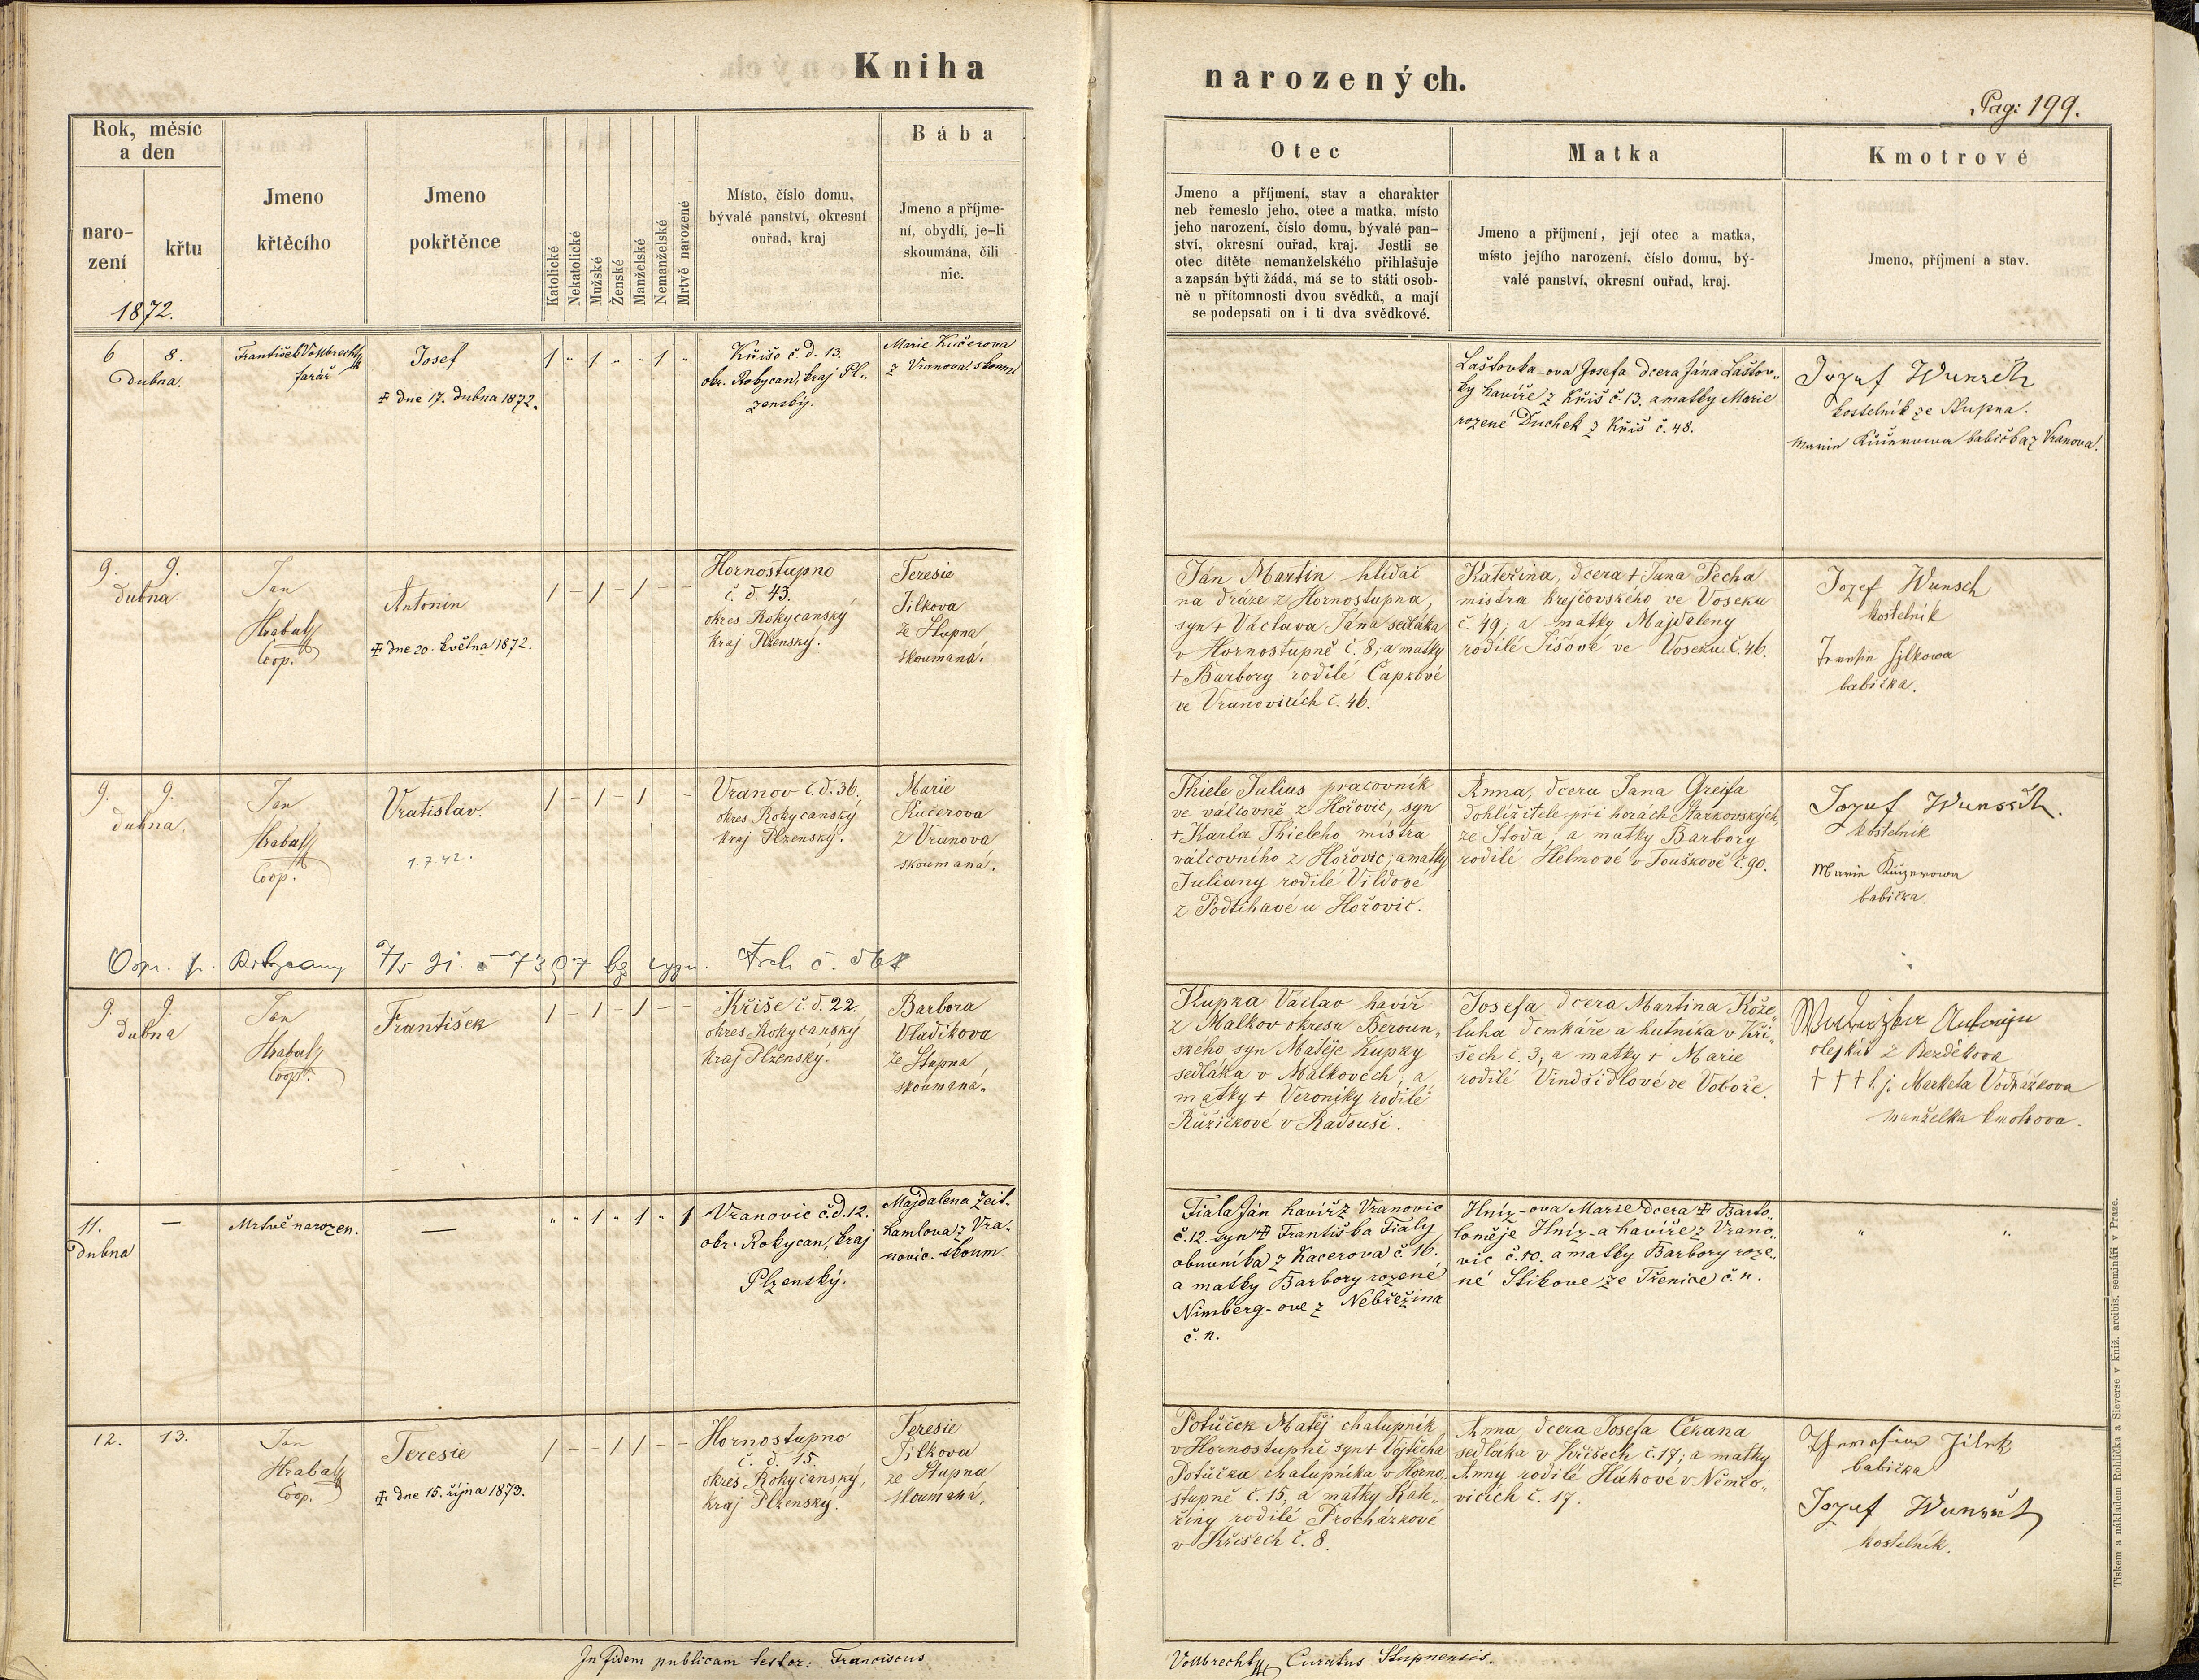 Kniha
narozených.
Pag: 199.
Rok, měsíc
a den
naro-
zení
křtu
1872.
Jmeno
křtěcího
Jmeno
pokřtěnce
Katolické
Nekatolické
Mužské
Ženské
Manželské
Nemanželské
Mrtvě narozené
Místo, číslo domu,
bývalé panství, okresní
ouřad, kraj
Bába
Jmeno a příjme-
ní, obydlí, je-li
skoumána, čili
nic.
Otec
Jmeno a příjmení, stav a charakter
neb řemeslo jeho, otec a matka, místo
jeho narození, číslo domu, bývalé pan-
ství, okresní ouřad, kraj. Jestli se
otec dítěte nemanželského přihlašuje
a zapsán býti žádá, má se to státi osob-
ně u přítomnosti dvou svědků, a mají
se podepsati on i ti dva svědkové.
Matka
Jmeno a příjmení, její otec a matka,
místo jejího narození, číslo domu, bý-
valé panství, okresní ouřad, kraj.
Kmotrové
Jmeno, příjmení a stav.
6 8.
Dubna.
František Vollbrecht
farář
Josef
† dne 17. dubna 1872.
1 " 1 " " 1 "
Kříše č d. 13.
okr. Rokycan, kraj Pl„
zenský.
Marie Kučerova
z Vranova. skoum.
Laštovka-ova Josefa dcera Jána Laštov„
ky havíře z Kříš č. 13. a matky Marie
rozené Duchek z Kříš č. 48.
Jozef Wunsch
kostelník ze Stupna.
Marie Kučerowa babička z Vranova.
9. 9.
dubna.
Jan
Hrabal
Coop.
Antonin
† dne 20. května 1872.
1 – 1 – 1 – –
Hornostupno
č. d. 43.
okres Rokycanský
kraj Plzenský.
Teresie
Jílkova
ze Stupna,
skoumaná.
Ján Martin hlídač
na dráze z Hornostupna,
syn + Václava Jána sedláka
v Hornostupně č. 8; a matky
+ Barbory rodilé Čapkové
ve Vranovicích č. 46.
Kateřina, dcera + Jana Pecha
mistra krejčovského ve Voseku
č 49; a matky Majdaleny
rodilé Šišové ve Voseku č. 46.
Jozef Wunsch
kostelník
Jylkowa
babička.
9. 9.
dubna.
Jan
Hrabal
Coop.
Vratislav.
1.7.42.
1 – 1 – 1 – –
Vranov č. d. 36.
okres Rokycanský
kraj Plzenský.
Marie
Kučerova
z Vranova
skoumaná.
Thiele Julius pracovník
ve válcovně z Hořovic, syn
+ Karla Thieleho mistra
válcovního z Hořovic; a matky
Juliany rodilé Vildové
z Podluhavé u Hořovic.
Anna, dcera Jana Greifa
dohlížitele při horách Starkovských,
ze Stoda; a matky Barbory
rodilé Helmové v Touškově č. 90.
Jozef Wunsch.
kostelník
Marie Kučerowa
babička.
9. 9.
dubna
Jan
Hrabal
Coop.
František
1 – 1 – 1 – –
Kříše č. d. 22.
okres Rokycanský
kraj Plzenský.
Barbora
Vladikova
ze Stupna,
skoumana.
Kupka Václav havíř
z Malkov okresu Beroun„
ského syn Matěje Kupky
sedláka v Malkovech, a
matky + Veroniky rodilé
Růžičkové v Radouši.
Josefa dcera Martina Kože„
luha domkáře a hutníka v Kří„
šech č. 3, a matky + Marie
rodilé Vindšidlové ve Voboře.
Antonín
olejkář z Bezděkova
† † † t. j. Marketa Vodrážkova
manželka kmotrova.
11.
Dubna
—
Mrtvě narozen.
—
" " 1 " 1 " 1
Vranovic č. d. 12.
okr. Rokycan, kraj
Plzenský.
Majdalena Zeit-
hamlova z Vra-
novic. skoum.
Fiala Ján havíř z Vranovic
č. 12. syn † Františka Fialy
obuvníka z Kacerova č. 16.
a matky Barbory rozené
Nimberg-ove z Nebřežina
č. n.
Hníz-ova Marie dcera † Barto„
loměje Hníz-a havíře z Vrano„
vic č. 10. a matky Barbory roze„
né Stikove ze Třenice č. n.
" "
12. 13.
Jan
Hrabal
Coop.
Teresie
† dne 15. října 1873.
1 – – 1 1 – –
Hornostupno
č. d. 15.
okres Rokycanský,
kraj Plzenský.
Teresie
Jílkova
ze Stupna
skoumaná.
Potůček Matěj chalupník
v Hornostupně syn + Vojtěcha
Potůčka chalupníka v Horno„
stupně č. 15, a matky Kate„
řiny rodilé Procházkové
v Kříšech č. 8.
Anna, dcera Josefa Čekana
sedláka v Kříšech č. 17; a matky
Anny rodilé Hůkové v Němčo„
vicích č. 17.
Jílek
babička
Jozef Wunsch
kostelník.
In fidem publicam testor: Franciscus
Vollbrecht Curatus Stupnensis.
Tiskem a nákladem Rohlíčka a Sieverse v kníž. arcibis. semináři v Praze.